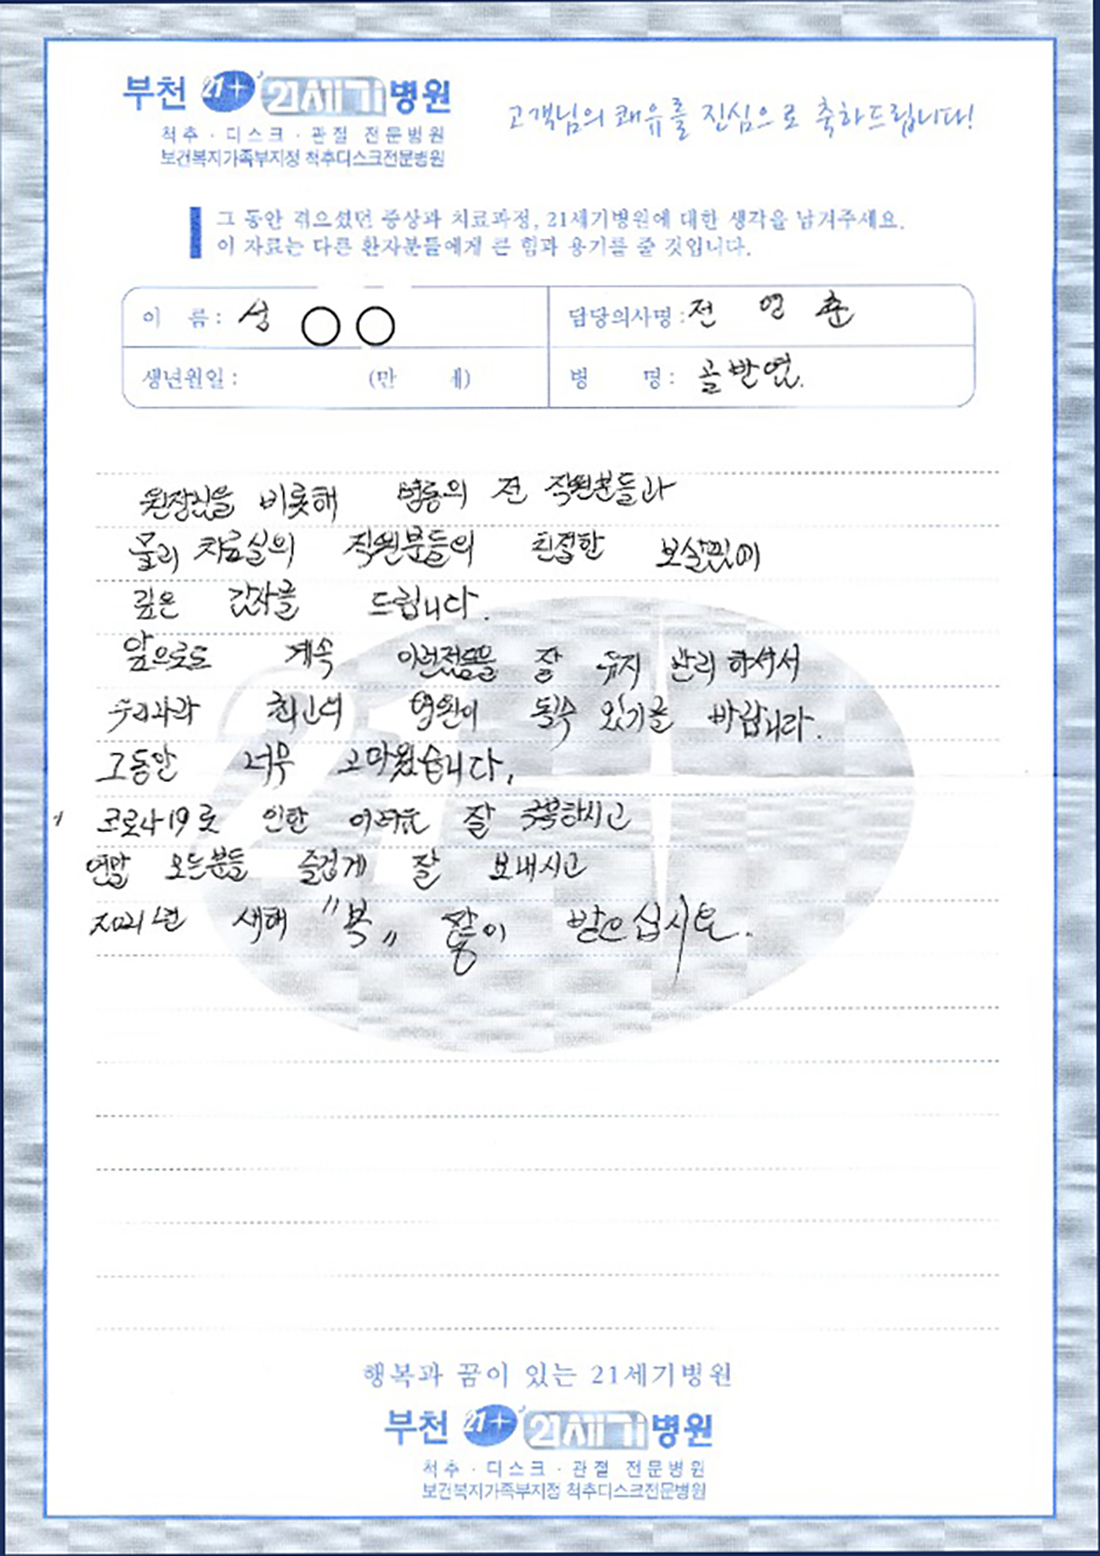 부천 21+ 21세기병원
척추 · 디스크 · 관절 전문병원
보건복지가족부지정 척추디스크전문병원
고객님의 쾌유를 진심으로 축하드립니다!
그 동안 겪으셨던 증상과 치료과정, 21세기병원에 대한 생각을 남겨주세요.
이 자료는 다른 환자분들에게 큰 힘과 용기를 줄 것입니다.
이 름 : 성 ○ ○
담당의사명 : 전 영 춘
생년월일 : (만 세)
병 명 : 골반염.
원장님을 비롯해 병동의 전 직원분들과
물리 치료실의 직원분들의 친절한 보살핌에
깊은 감사를 드립니다.
앞으로도 계속 이런점들을 잘 유지 관리 하셔서
우리나라 최고의 병원이 될수 있기를 바랍니다.
그동안 너무 고마웠습니다.
코로나19로 인한 어려움 잘 극복하시고
연말 모든분들 즐겁게 잘 보내시고
2021년 새해 "복" 많이 받으십시요.
행복과 꿈이 있는 21세기병원
부천 21+ 21세기병원
척추 · 디스크 · 관절 전문병원
보건복지가족부지정 척추디스크전문병원